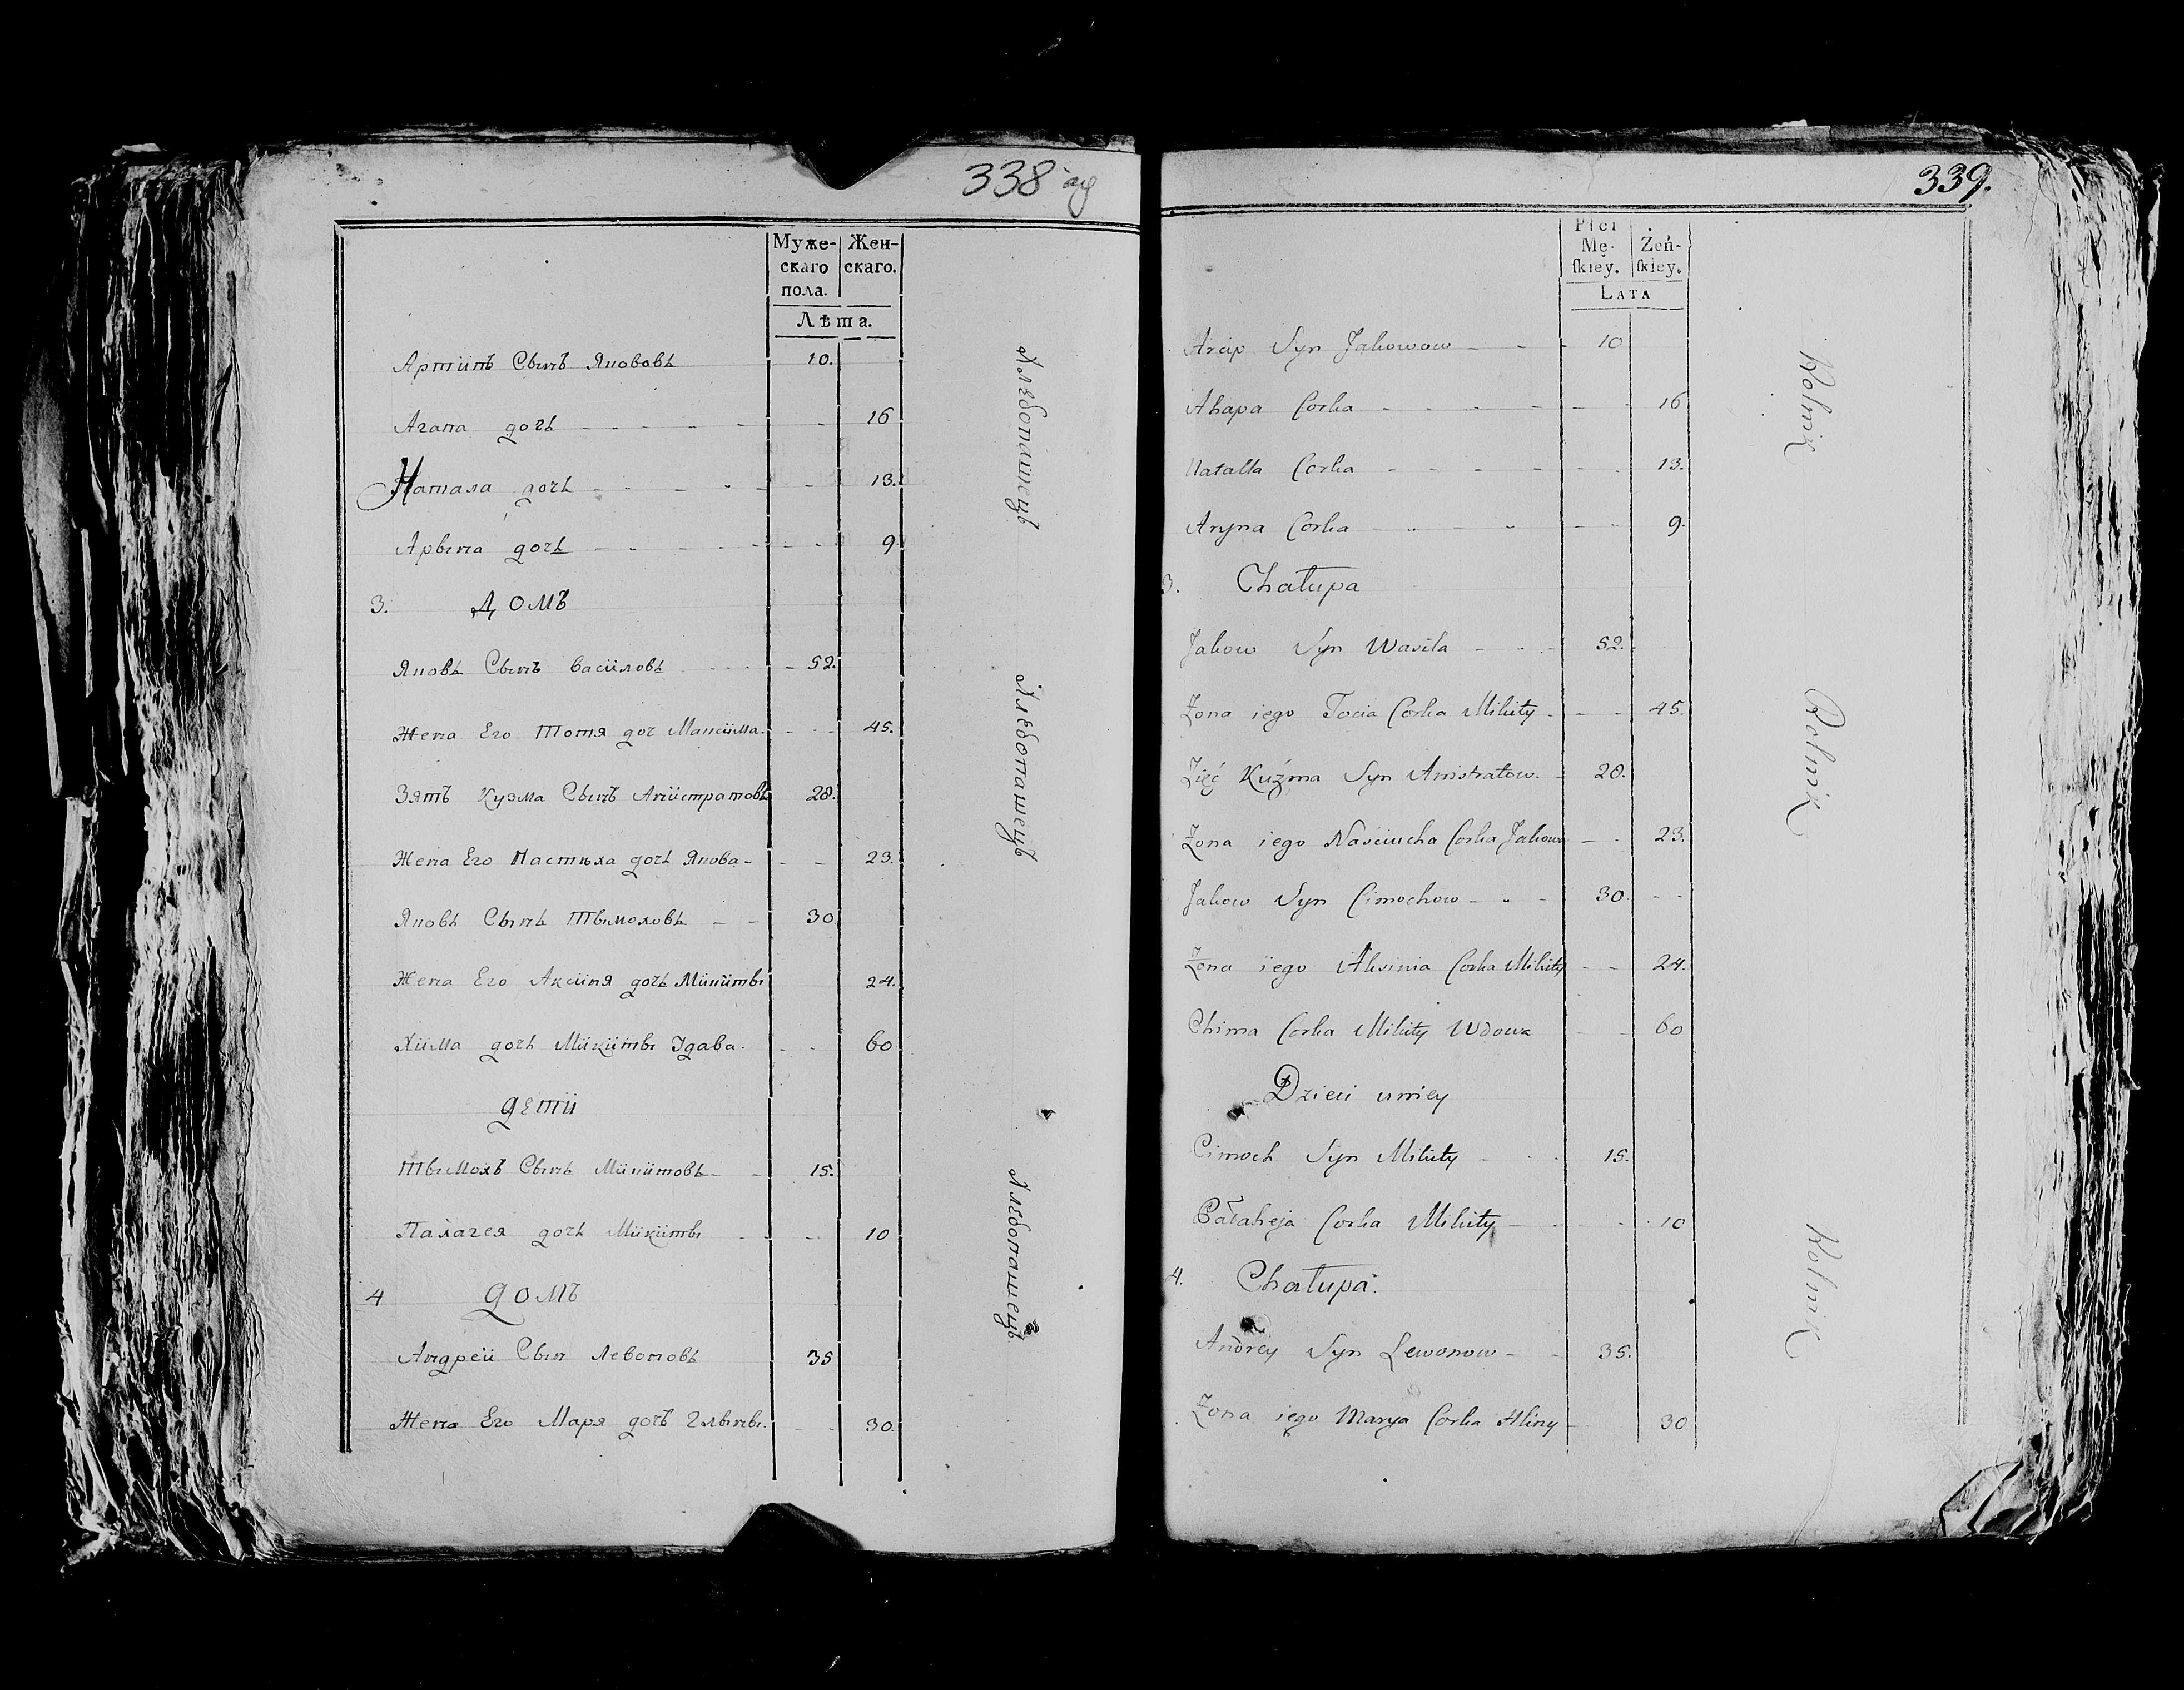 338
Муже-
скаго
пола.
Жен-
скаго.
Лѣта.
Артипъ Сынъ Яковова 10.
Агапа дочь 16
Натала дочь 13.
Арына дочь 9
3. Домъ
Яковъ Сынъ Василовъ 52.
Жена Его Тотя доч Максима 45.
Зятъ Кузма Сынъ Анистратовъ 28.
Жена Его Настюха дочь Якова 23.
Яковъ Сынъ Тымоховъ 30
Жена Его Аксиня дочь Микиты 24.
Хима дочь Микиты Удава 60
Дети
Тымохъ Сынъ Микитовъ 15.
Палагея дочь Микиты 10
4 Домъ
Андреи Сын Левоновъ 35
Жена Его Маря дочъ Глыны 30.
Хлебопашецъ
Хлебопашецъ
Хлебопашецъ
339.
Płci
Mę-
ſkiey.
Żeń-
ſkiey.
LATA
Arcip Syn Jakowow 10
Ahapa Corka 16
Natalla Corka 13.
Aryna Corka 9.
3. Chałupa
Jakow Syn Wasila 52.
Żona iego Tocia Corka Mikity 45.
Zięć Kuźma Syn Anistratow 28.
Żona iego Naściucha Corka Jakowa 23.
Jakow Syn Cimochow 30.
Żona iego Aksinia Corka Mikity 24.
Chima Corka Mikity Wdowa 60
Dzieci u niey
Cimoch Syn Mikity 15.
Pałaheja Corka Mikity 10
4. Chałupa.
Andrey Syn Lewonow 35.
Żona iego Marya Corka Hliny 30
Rolnik
Rolnik
Rolnik